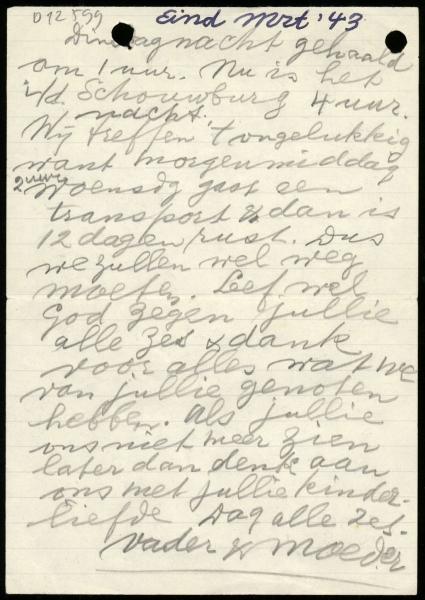 D12599
Eind Mrt '43
Dinsdagnacht gehaald
om 1 uur. Nu is het
i/d. Schouwburg 4 uur.
nacht.
Wij treffen 't ongelukkig
want morgenmiddag
2 uur Woensdg gaat een
transport & dan is
12 dagen rust. Dus
we zullen wel weg
moeten. Leef wel
God zegen jullie
alle zes & dank
voor alles wat we
van jullie genoten
hebben. Als jullie
ons niet meer zien
later dan denk aan
ons met jullie kinder-
liefde Dag alle zes.
Vader & Moeder